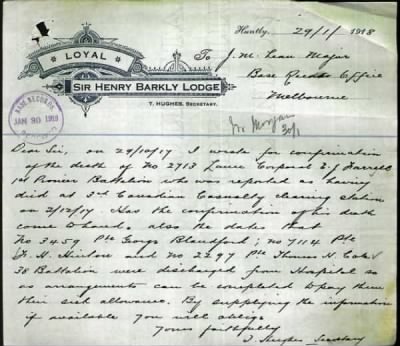 Huntly, 29/1/1918
LOYAL
SIR HENRY BARKLY LODGE
T. HUGHES, SECRETARY.
To J. M. Lean Major
Base Records Office
Melbourne
BASE RECORDS
JAN 30 1918
30/1
Dear Sir, on 29/10/17 I wrote for confirmation
of the death of No 2713 Lance Corporal E. J.
1st Pioneer Battalion who was reported as having
died at 3rd Canadian Casualty clearing station
on 2/10/17. Has the confirmation of his death
come to hand. also the dates that
No 3459 Pte George Blandford; No 7114 Pte
F. H. Hinton and No 2297 Pte Thomas H.
38 Battalion were discharged from Hospital so
as arrangements can be completed to pay them
their sick allowance. By supplying the information
if available you will oblige
Yours faithfully
T. Hughes Secretary